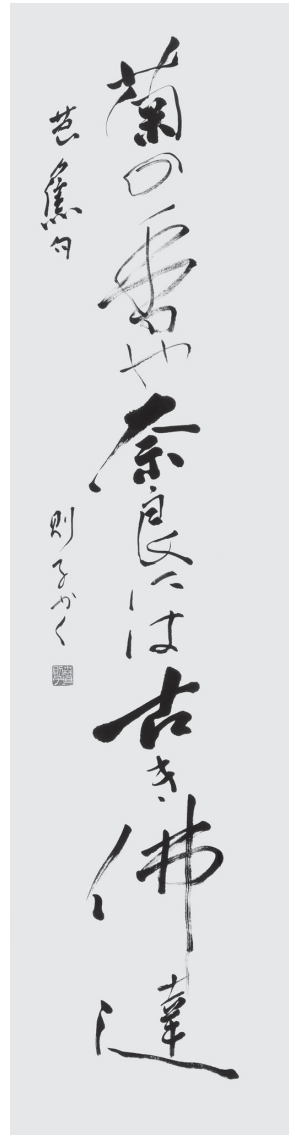 菊の香や奈良には古き佛達
芭蕉句
則子かく